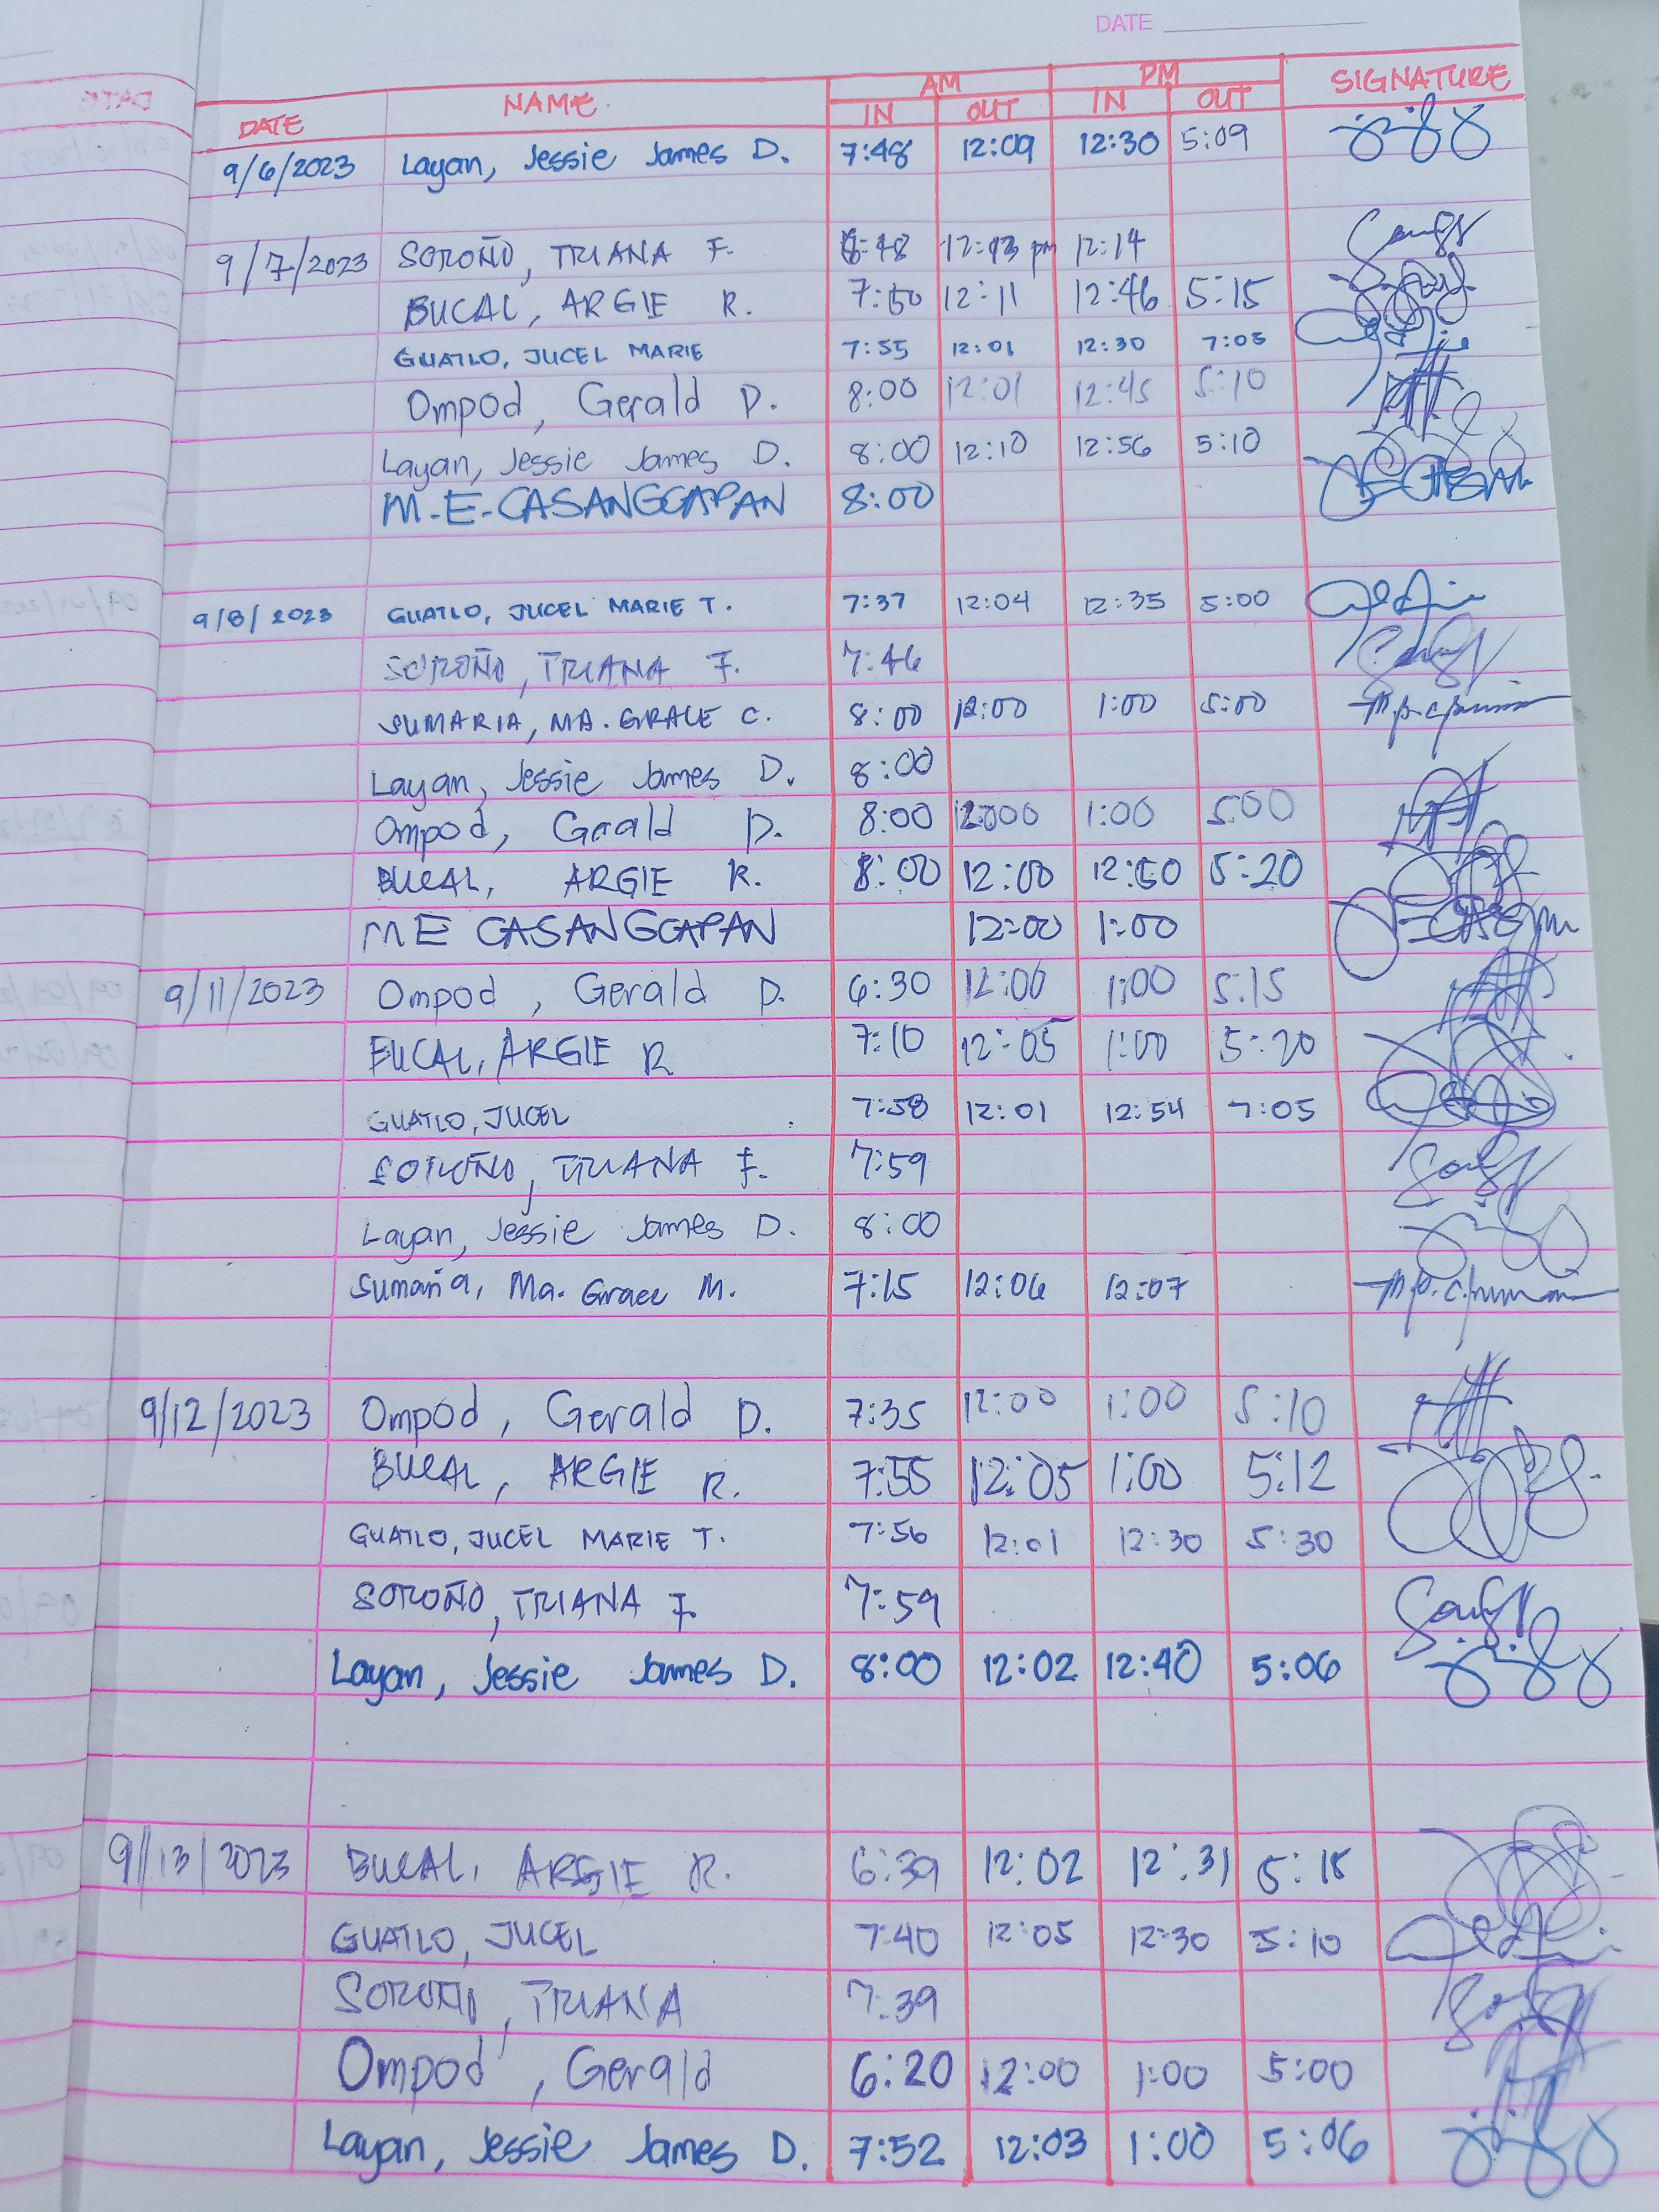 DATE
AM PM
DATE NAME IN OUT IN OUT SIGNATURE
9/6/2023 Layan, Jessie James D. 7:48 12:09 12:30 5:09
9/7/2023 SOROÑO, TRIANA F. 12:14
BUCAL, ARGIE R. 7:50 12:11 12:46 5:15
GUATLO, JUCEL MARIE 7:55 12:01 12:30 7:05
Ompod, Gerald D. 8:00 12:01 12:45 5:10
Layan, Jessie James D. 8:00 12:10 12:56 5:10
M.E. CASANGCAPAN 8:00
9/8/2023 GUATLO, JUCEL MARIE T. 7:37 12:04 12:35 5:00
SOROÑO, TRIANA F. 7:46
SUMARIA, MA. GRACE C. 8:00 12:00 1:00 5:00
Layan, Jessie James D. 8:00
Ompod, Gerald D. 8:00 1:00 5:00
BUCAL, ARGIE R. 8:00 12:00 12:50 5:20
M E CASANGCAPAN 12:00 1:00
9/11/2023 Ompod, Gerald D. 6:30 12:00 1:00 5:15
BUCAL, ARGIE R 7:10 12:05 1:00 5:20
GUATLO, JUCEL 7:58 12:01 12:54 7:05
SOROÑO, TRIANA F. 7:59
Layan, Jessie James D. 8:00
Sumaria, Ma. Grace M. 7:15 12:06 12:07
9/12/2023 Ompod, Gerald D. 7:35 12:00 1:00 5:10
BUCAL, ARGIE R. 7:55 12:05 1:00 5:12
GUATLO, JUCEL MARIE T. 7:56 12:01 12:30 5:30
SOROÑO, TRIANA F. 7:59
Layan, Jessie James D. 8:00 12:02 12:40 5:06
9/13/2023 BUCAL, ARGIE R. 6:39 12:02 12:31 5:15
GUATLO, JUCEL 7:40 12:05 12:30 5:10
SOROÑO, TRIANA 7:39
Ompod, Gerald 6:20 12:00 1:00 5:00
Layan, Jessie James D. 7:52 12:03 1:00 5:06